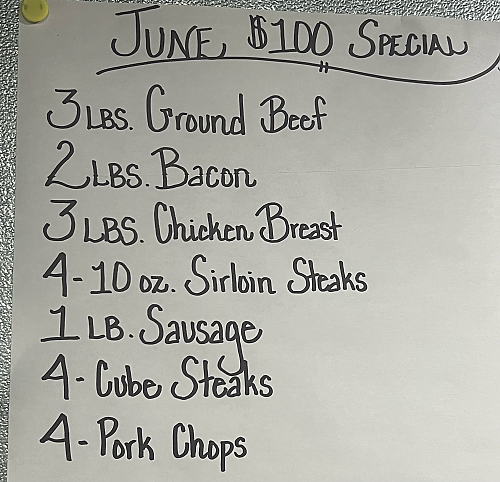 JUNE $100 SPECIAL
3 LBS. Ground Beef
2 LBS. Bacon
3 LBS. Chicken Breast
4-10 oz. Sirloin Steaks
1 LB. Sausage
4- Cube Steaks
4- Pork Chops